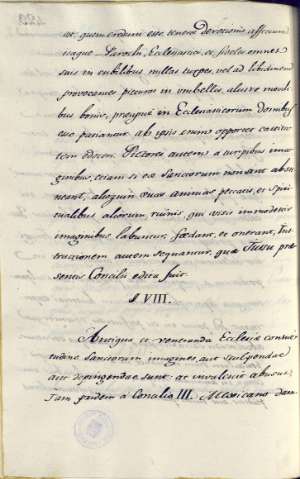 ac quem credum esse tenere devotionis affectum
itaque Parochi, Ecclesiastici, et fideles omnes
suis in cubilibus nullas turpes, vel ad libidinem
provocantes picturas in umbellis, aliisve mobi-
libus, præsertim in Ecclesiasticorum domibus
esse patiantur ab ipsis enim oportet castita-
tem edocere. Pictores autem a turpibus ima-
ginibus, etiam si ex Sanctorum non sint absti-
neant, alioquin suas animas peccatis, et spiri-
tualibus aliorum ruinis, qui visis immodestis
imaginibus labuntur, fœdant, et onerant, Ins-
tructionem autem sequantur, quæ Jussu præ-
sentis Concilii edita fuit.
§ VIII.
Antiqua et veneranda Ecclesiæ consue-
tudine Sanctorum imagines, aut sculpendæ
aut depingendæ sunt: at invalescit abusus:
Jam pridem à Concilio III. Mexicano dam-